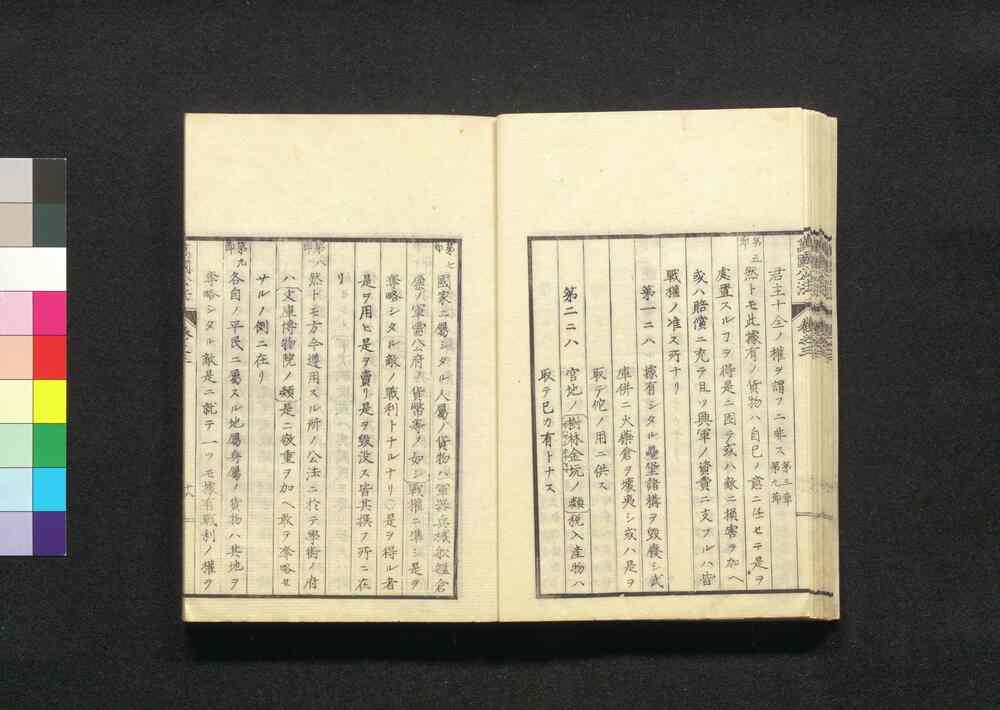 萬國公法 卷之三
君主十全ノ權ヲ謂フニ非ス 第三章 第九節
第五節 然トモ此據有ノ貨物ハ自己ノ意ニ任セテ是ヲ
處置スルヿヲ得是ニ因テ或ハ敵ニ損害ヲ加ヘ
或ハ賠償ニ充テ且ツ興軍ノ資費ニ支フルハ皆
戰權ノ准ス所ナリ
第一ニハ 據有シタル壘堡諸構ヲ毀襲シ武
庫併ニ火藥倉ヲ壊夷シ或ハ是ヲ
取テ佗ノ用ニ供ス
第二ニハ 官地ノ樹林金坑ノ類税入産物ハ
取テ已カ有トナス
第七節 國家ニ屬シタル人屬ノ貨物ハ軍器兵械船艦倉
廩ノ軍需公府ノ貨幣等ノ如シ戰權ニ準シ是ヲ
奪略シタル敵ノ戰利トナルナリ是ヲ得ル者
是ヲ用ヒ是ヲ賣リ是ヲ毀没ス皆其撰フ所ニ在
リ
第八節 然トモ方今遵用スル所ノ公法ニ於テ學術ノ府
ハ文庫博物院ノ類是ニ敬重ヲ加ヘ敢テ奪略セ
サルノ例ニ在リ
第九節 各自ノ平民ニ屬スル地屬身屬ノ貨物ハ其地ヲ
奪略シタル敵是ニ就テ一ツモ據有戰利ノ權ヲ
萬國公法 卷之三
十八